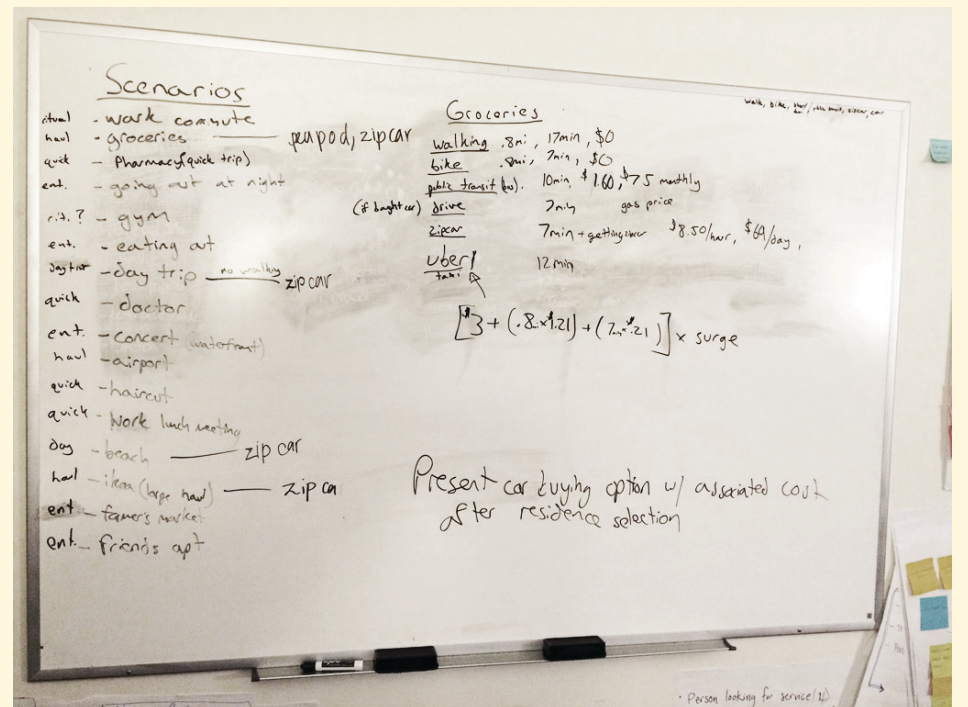 Scenarios
ritual - work commute
haul - groceries — peapod, zipcar
quick - Pharmacy (quick trip)
ent. - going out at night
rit. ? - gym
ent. - eating out
day trip - day trip — no walking — zipcar
quick - doctor
ent. - concert (waterfront)
haul - airport
quick - haircut
quick - Work lunch meeting
day - beach — zip car
haul - ikea (large haul) — zip ca
ent - famer's market
ent. - friends apt
walk, bike, public transit, zipcar, car
Groceries
walking .8mi, 17min, $0
bike .8mi, 7min, $0
public transit (bus). 10min, $1.60, $75 monthly
(if bought car) drive 7min gas price
zipcar 7min + getting $8.50/hour, $69/day,
uber/ 12min
taxi
[$3 + (.8 × $1.21) + (7min × $.21)] × surge
Present car buying option w/ associated cost
after residence selection
· Person looking for service